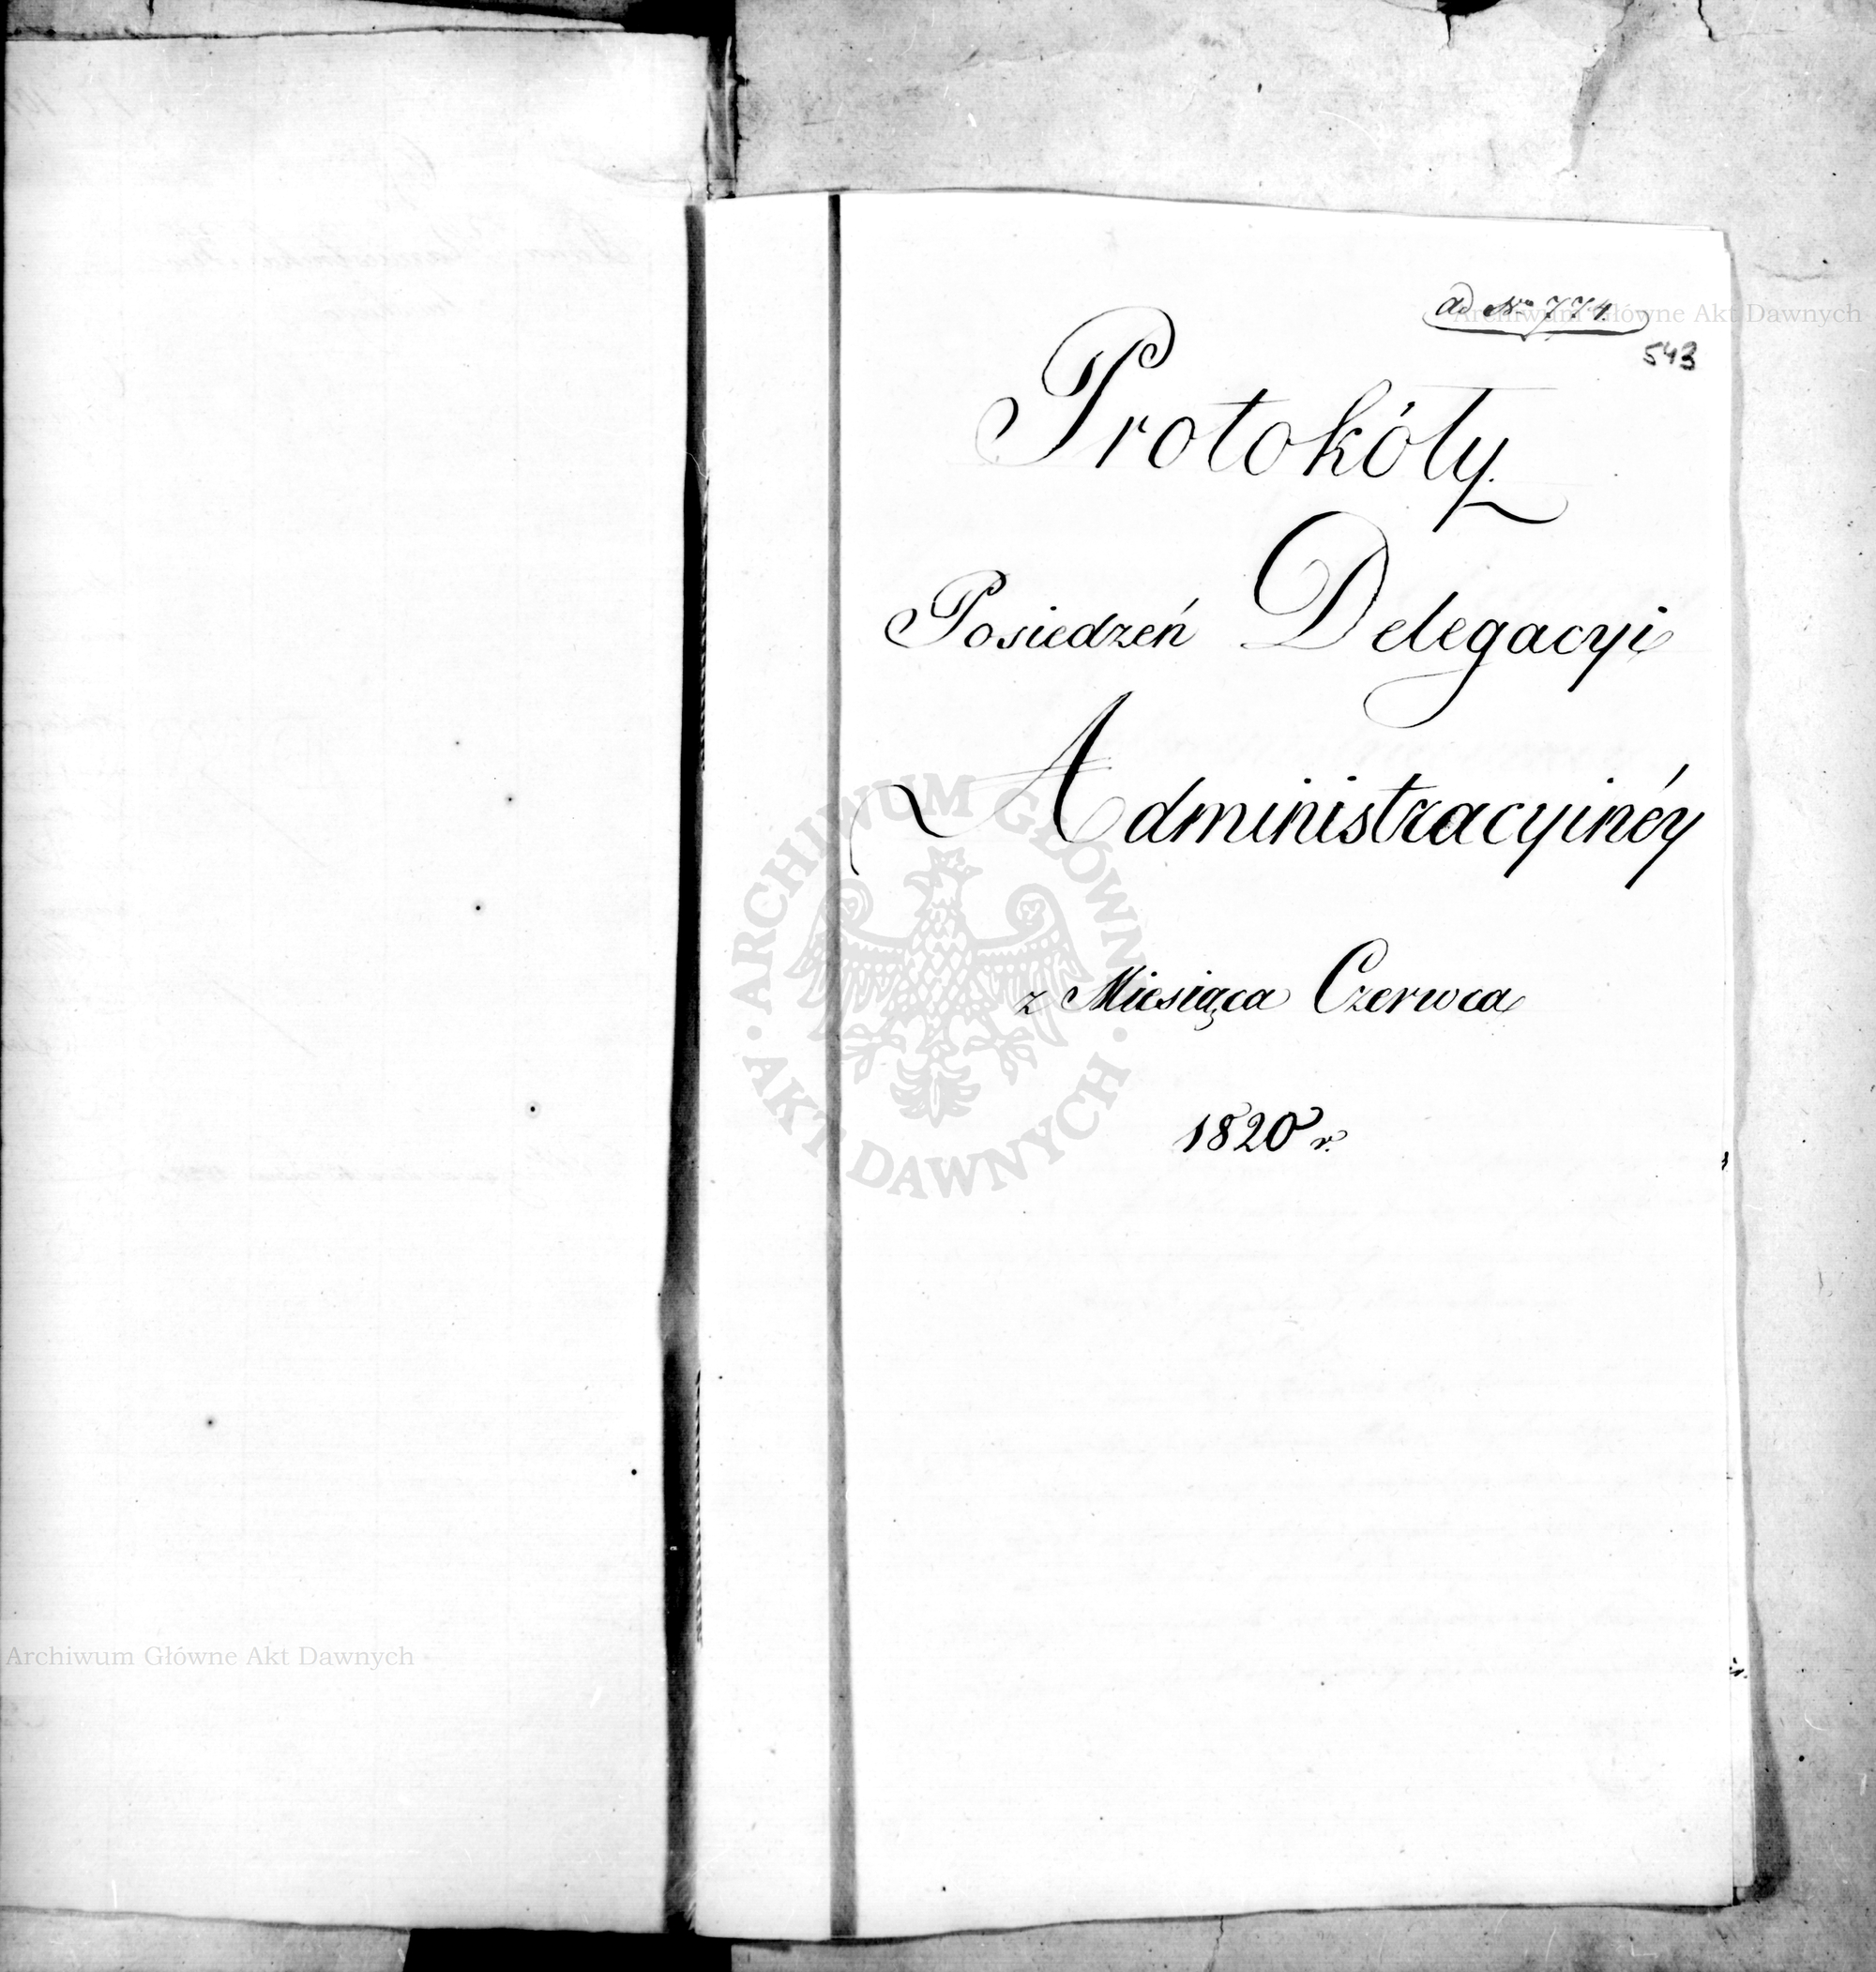 ad No 774
543
Protokóły
Posiedzeń Delegacyi
Administracyinéy
z Miesiąca Czerwca
1820 r.
Archiwum Główne Akt Dawnych
ARCHIWUM GŁÓWNE AKT DAWNYCH
Archiwum Główne Akt Dawnych